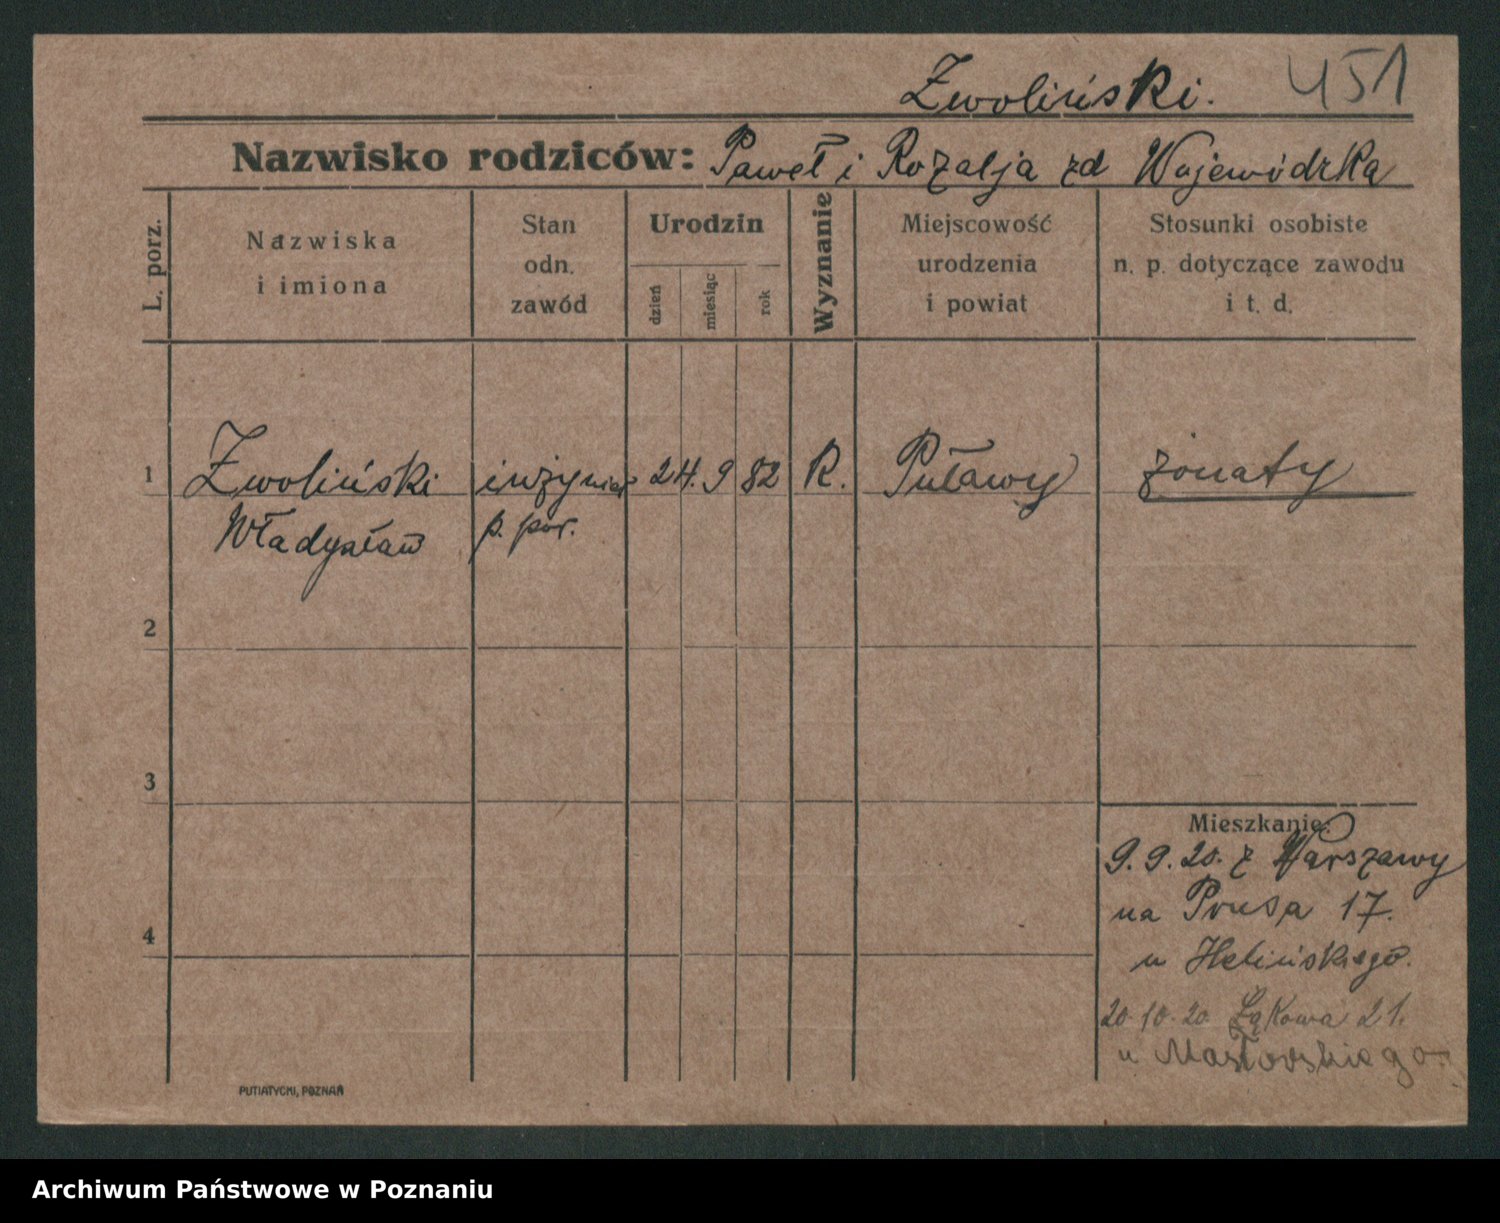 Zwoliński. 451
Nazwisko rodziców: Paweł i Rozalja zd Wojewódzka
L. porz.
Nazwiska
i imiona
Stan
odn.
zawód
Urodzin
dzień
miesiąc
rok
Wyznanie
Miejscowość
urodzenia
i powiat
Stosunki osobiste
n. p. dotyczące zawodu
i t. d.
1 Zwoliński inżynier 24. 9 82 R. Puławy żonaty
Władysław p. por.
2
3
Mieszkanie:
9. 9. 20. z Warszawy
na Prusa 17.
4
u
20. 10. 20. Łąkowa 21.
u Masłowskiego.
PUTIATYCKI, POZNAŃ
Archiwum Państwowe w Poznaniu